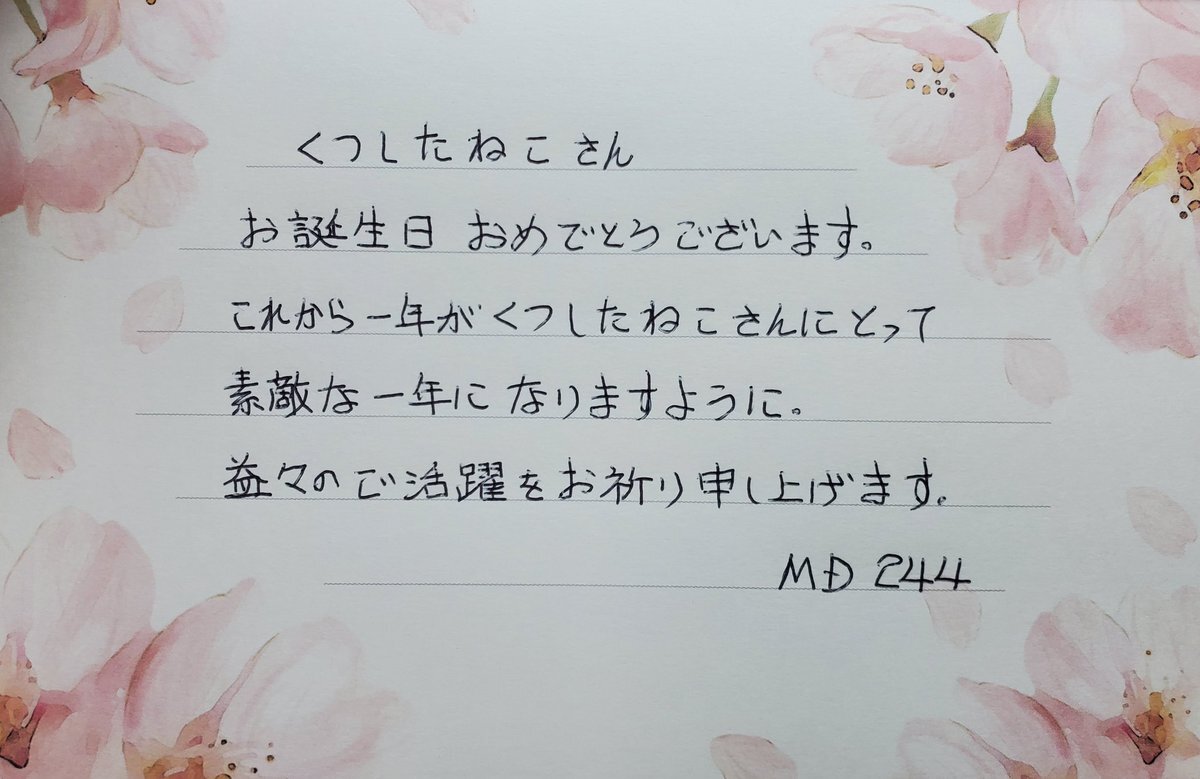 くつしたねこさん
お誕生日 おめでとうございます。
これから一年がくつしたねこさんにとって
素敵な一年になりますように。
益々のご活躍をお祈り申し上げます。
MD 244